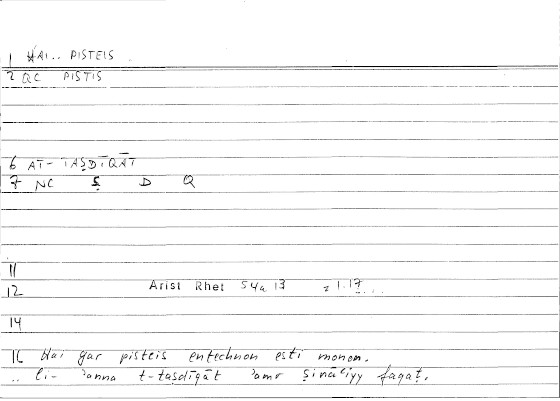 1 HAI.. PISTEIS
2 QC PISTIS
6 AT-TAṢDĪQĀT
7 NC Ṣ D Q
11
12 Arist Rhet 54a 13 = 1.17...
14
16 Hai gar pisteis entechnon esti monon.
.. li-ʾanna t-taṣdīqāt ʾamr ṣināʿiyy faqaṭ.